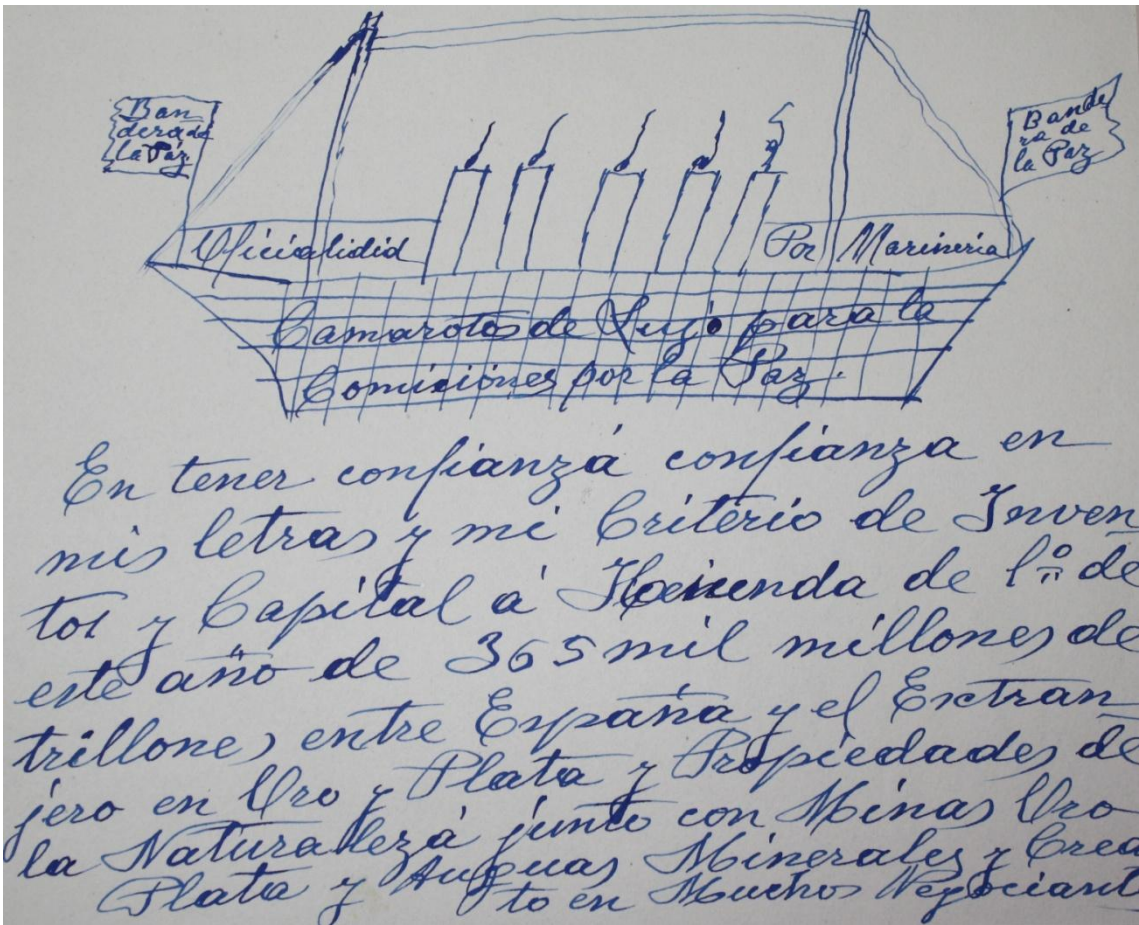 Ban
dera de
la Paz.
Bande
ra de
la Paz
Oficialidid
Por Marineria
Camarotos de Lujo para la
Comiciones por la Paz.
En tener confianzá confianza en
mis letras y mi Criterio de Inven
tos y Capital á de 1º de
este año de 365 mil millones de
trillones entre España y el Extran
jero en Oro y Plata y Propiedades de
la Naturalezá junto con Minas Oro
Plata y Minerales y Crea
to en Muchos Negociant